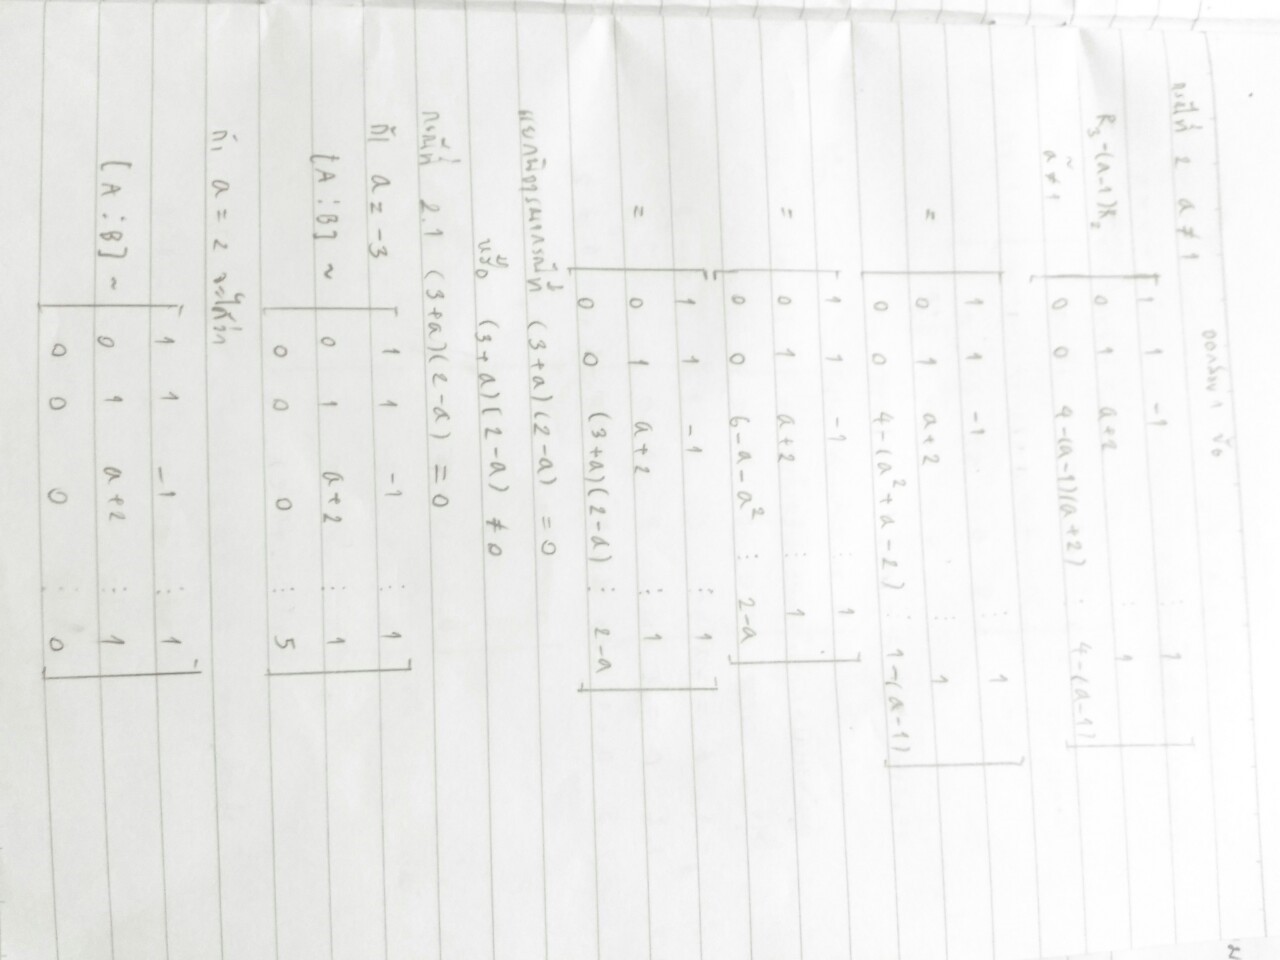 ออกสอบ 1 ข้อ
กรณีที่ 2 a ≠ 1
R₃-(a-1)R₂ [ 1 1 -1 ⋮ 1 ]
~ [ 0 1 a+2 ⋮ 1 ]
a ≠ 1 [ 0 0 4-(a-1)(a+2) ⋮ 4-(a-1) ]
[ 1 1 -1 ⋮ 1 ]
= [ 0 1 a+2 ⋮ 1 ]
[ 0 0 4-(a²+a-2) ⋮ 1-(a-1) ]
[ 1 1 -1 ⋮ 1 ]
= [ 0 1 a+2 ⋮ 1 ]
[ 0 0 6-a-a² ⋮ 2-a ]
[ 1 1 -1 ⋮ 1 ]
= [ 0 1 a+2 ⋮ 1 ]
[ 0 0 (3+a)(2-a) ⋮ 2-a ]
แยกพิจารณากรณีที่ (3+a)(2-a) = 0
หรือ (3+a)(2-a) ≠ 0
กรณีที่ 2.1 (3+a)(2-a) = 0
ถ้า a = -3 [ 1 1 -1 ⋮ 1 ]
[A⋮B] ~ [ 0 1 a+2 ⋮ 1 ]
[ 0 0 0 ⋮ 5 ]
ถ้า a = 2 จะได้ว่า
[ 1 1 -1 ⋮ 1 ]
[A⋮B] ~ [ 0 1 a+2 ⋮ 1 ]
[ 0 0 0 ⋮ 0 ]